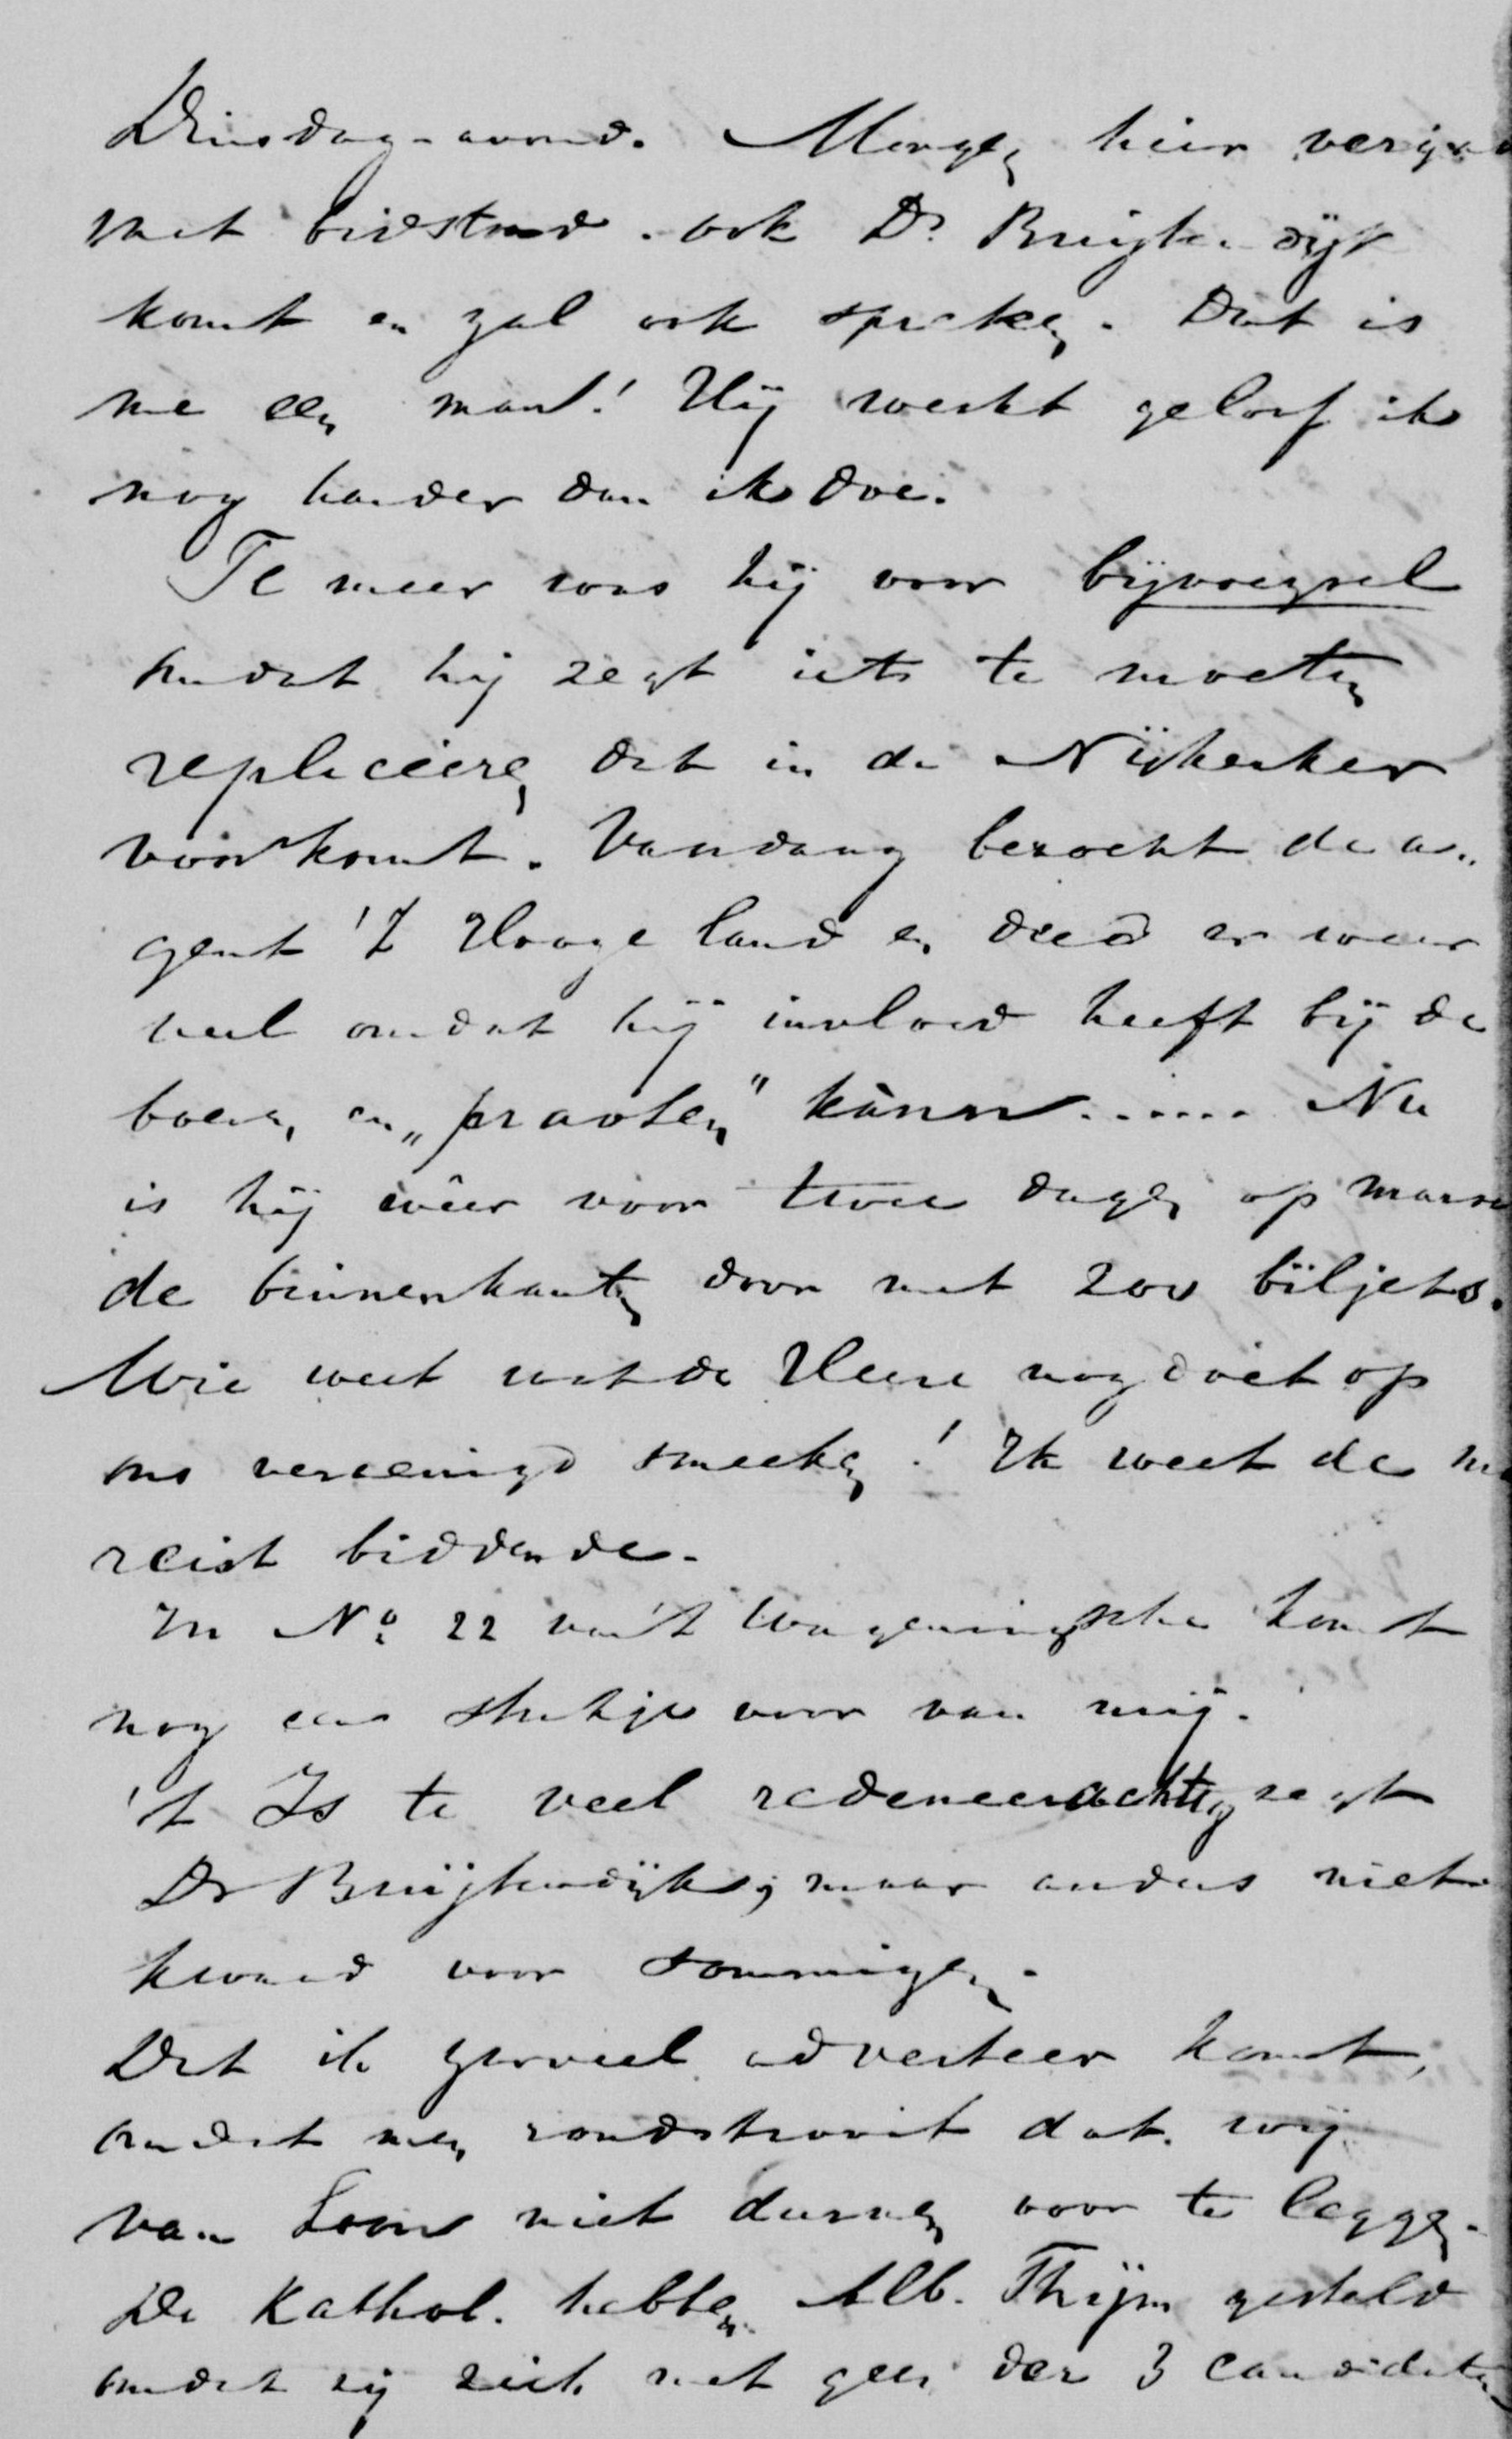 Dinsdag-avond. Morgen hier verga
met bidstond. ook Dr. Bruijtendijk
komt en zal ook spreken. Dat is
me een man! Hij werkt geloof ik
nog harder dan ik doe.
Te meer was hij voor bijvoegsel
omdat hij zegt iets te moeten
repliceeren dat in de Nijkerker
voorkomt. Vandaag bezocht de a„
gent 't Hooge land en deed er weer
veel omdat hij invloed heeft bij de
boeren en „praoten" kànn...... Nu
is hij wêer voor twee dagen op marsch
de binnenkanten door met 200 biljets.
Wie weet wat de Heere nog doet op
ons vereenigd smeeken! Ik weet de m
reist biddende.
In No. 22 van 't Wageningsche komt
nog een stukje voor van mij.
't Is te veel redeneerachtig zegt
Dr Bruijtendijk; maar anders niet
kwaad voor sommigen.
Dat ik zooveel adverteer komt,
omdat men rondstrooit dat wij
van Loon niet durven voor te leggen.
De Kathol. hebben Alb. Thijm gesteld
omdat zij zich met geen der 3 candidaten